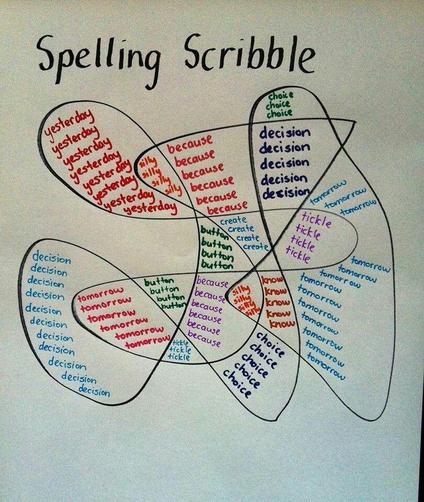 Spelling Scribble
yesterday
yesterday
yesterday
yesterday
yesterday
yesterday
yesterday
yesterday
silly
silly
silly
silly
because
because
because
because
because
because
choice
choice
choice
decision
decision
decision
decision
decision
tomorrow
tomorrow
tomorrow
create
create
create
create
tickle
tickle
tickle
tickle
button
button
button
button
decision
decision
decision
decision
decision
decision
decision
decision
decision
decision
decision
tomorrow
tomorrow
tomorrow
tomorrow
tomorrow
tomorrow
button
button
button
button
tickle
tickle
tickle
because
because
because
because
because
because
silly
silly
silly
silly
know
know
know
know
know
choice
choice
choice
choice
choice
tomorrow
tomorrow
tomorrow
tomorrow
tomorrow
tomorrow
tomorrow
tomorrow
tomorrow
tomorrow
tomorrow